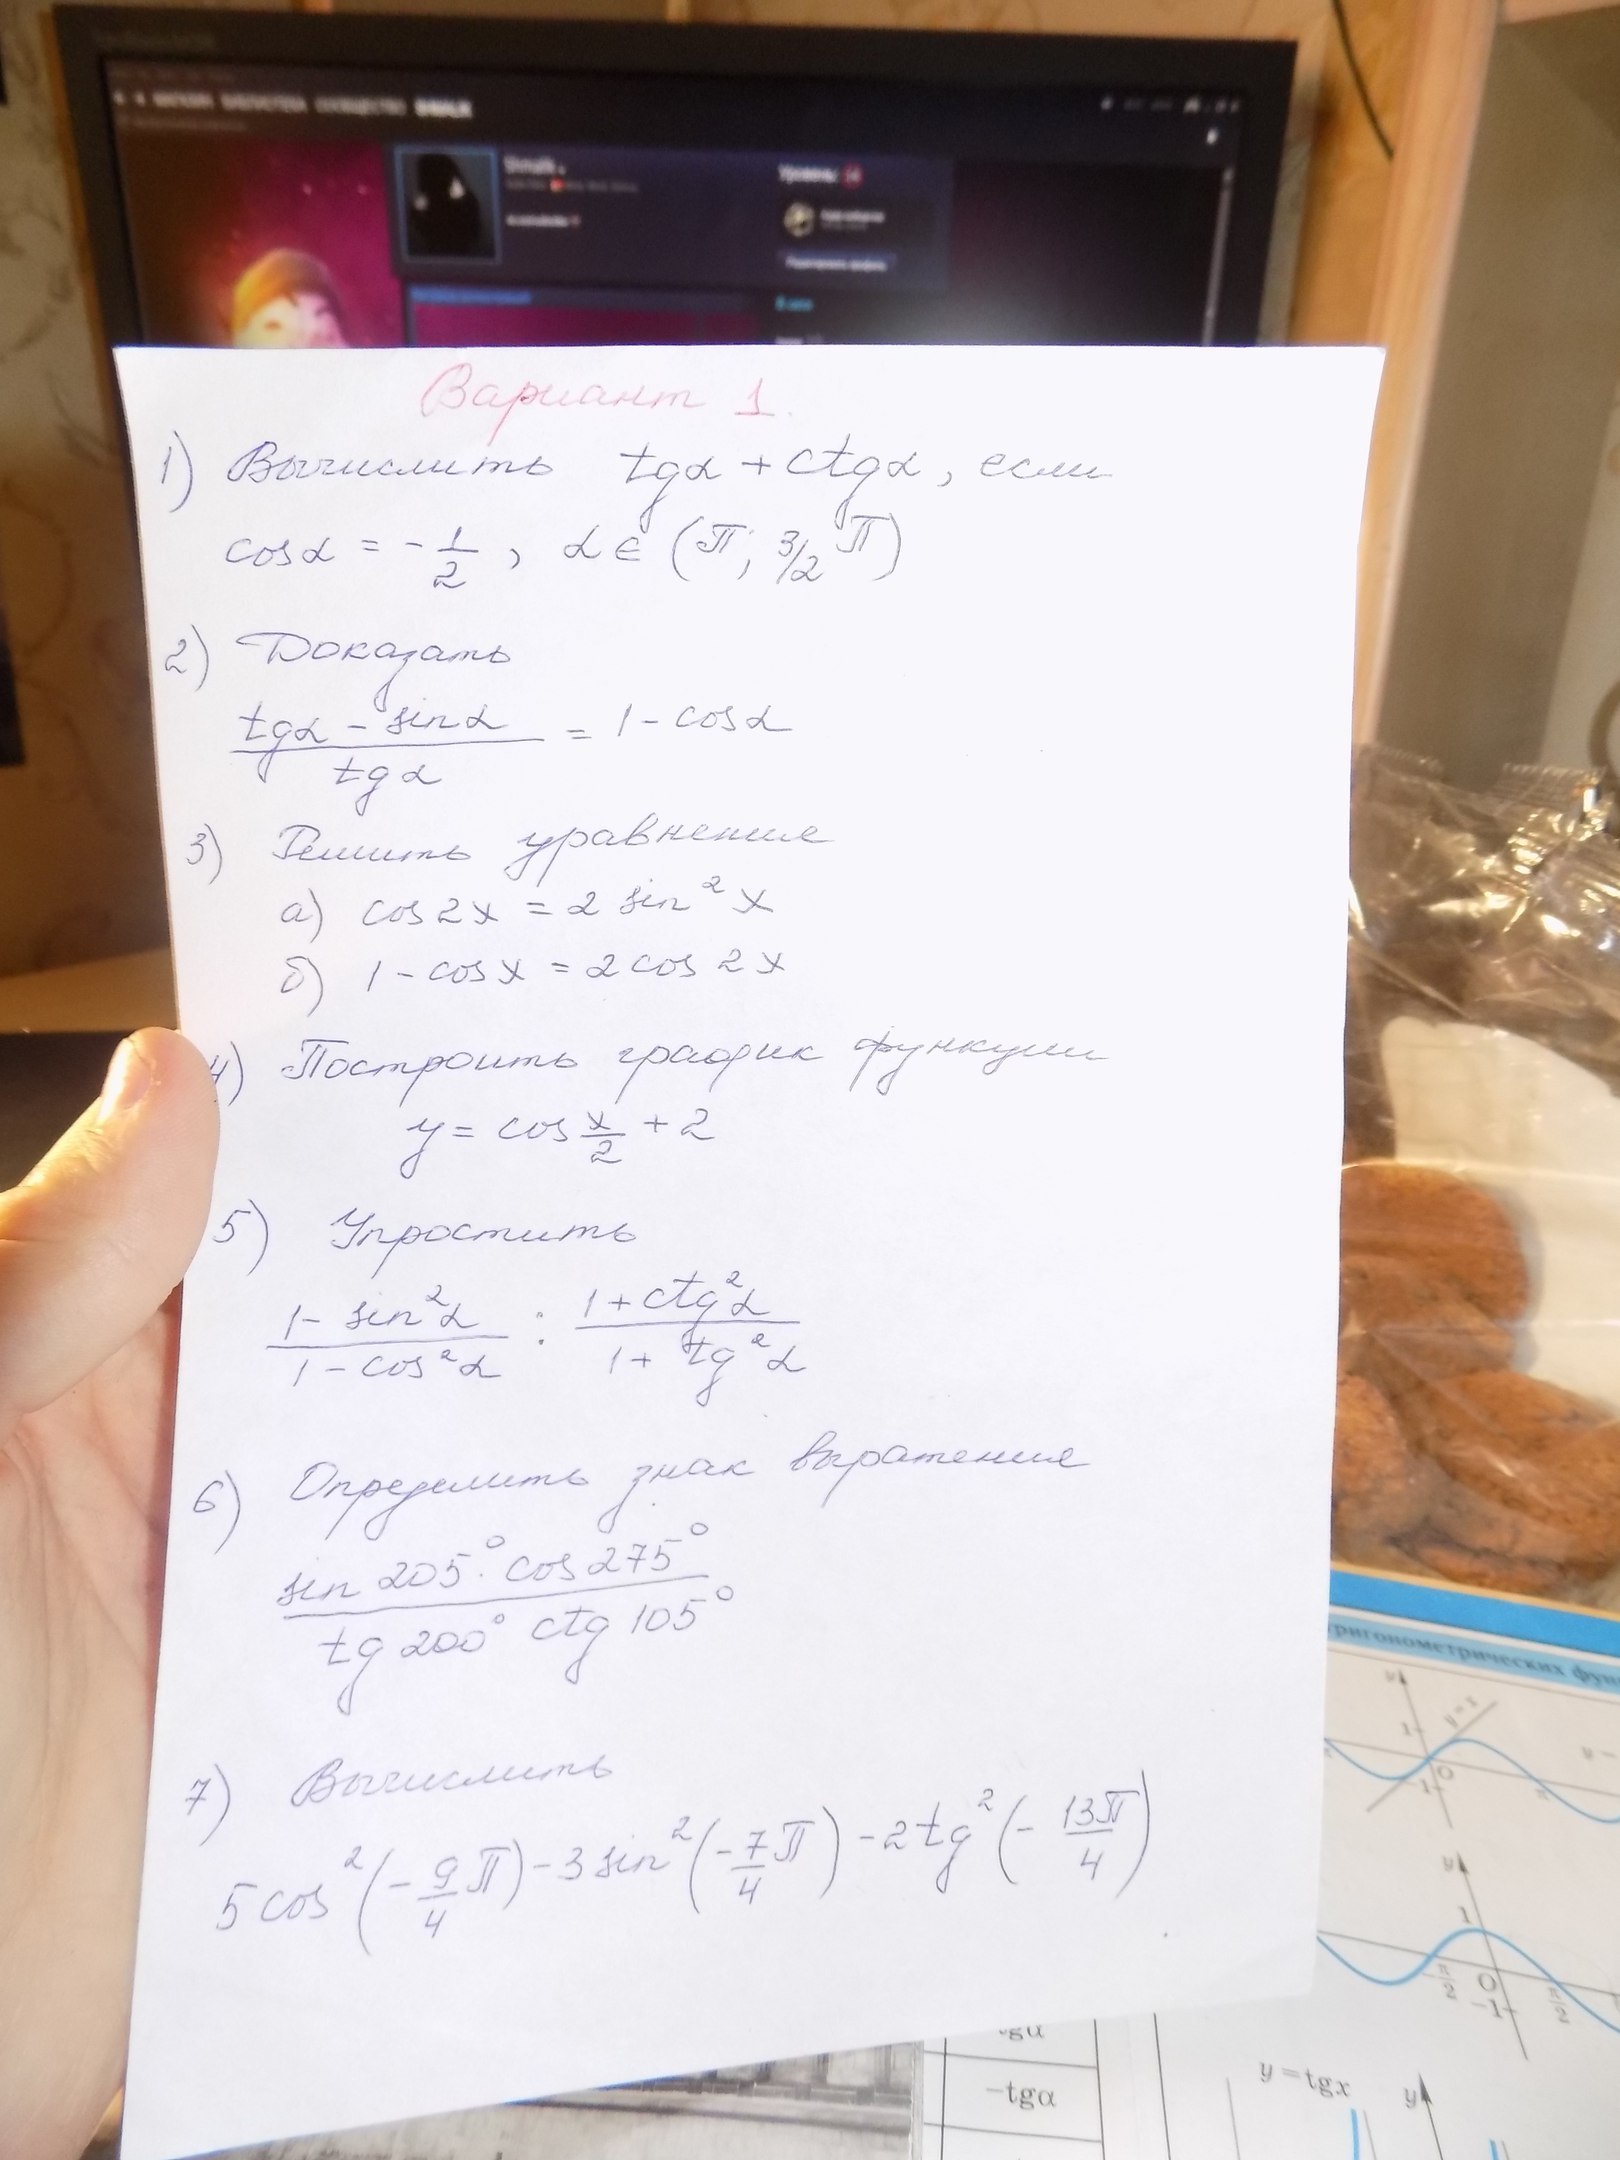 МАГАЗИН БИБЛИОТЕКА СООБЩЕСТВО
Уровень
В сети
Вариант 1.
1) Вычислить tgα + ctgα, если
cosα = -1/2, α ∈ (π; 3/2 π)
2) Доказать
(tgα - sinα)/tgα = 1 - cosα
3) Решить уравнение
а) cos2x = 2 sin²x
б) 1 - cosx = 2cos 2x
4) Построить график функции
y = cos x/2 + 2
5) Упростить
(1 - sin²α)/(1 - cos²α) : (1 + ctg²α)/(1 + tg²α)
6) Определить знак выражения
(sin 205° · cos 275°)/(tg 200° ctg 105°)
7) Вычислить
5 cos²(-9/4 π) - 3 sin²(-7/4 π) - 2 tg²(-13π/4)
тригонометрических фун
y
1
y = x
y =
0
-1
y
1
π/2
0
π/2
-1
tgα
-tgα
y = tgx
y